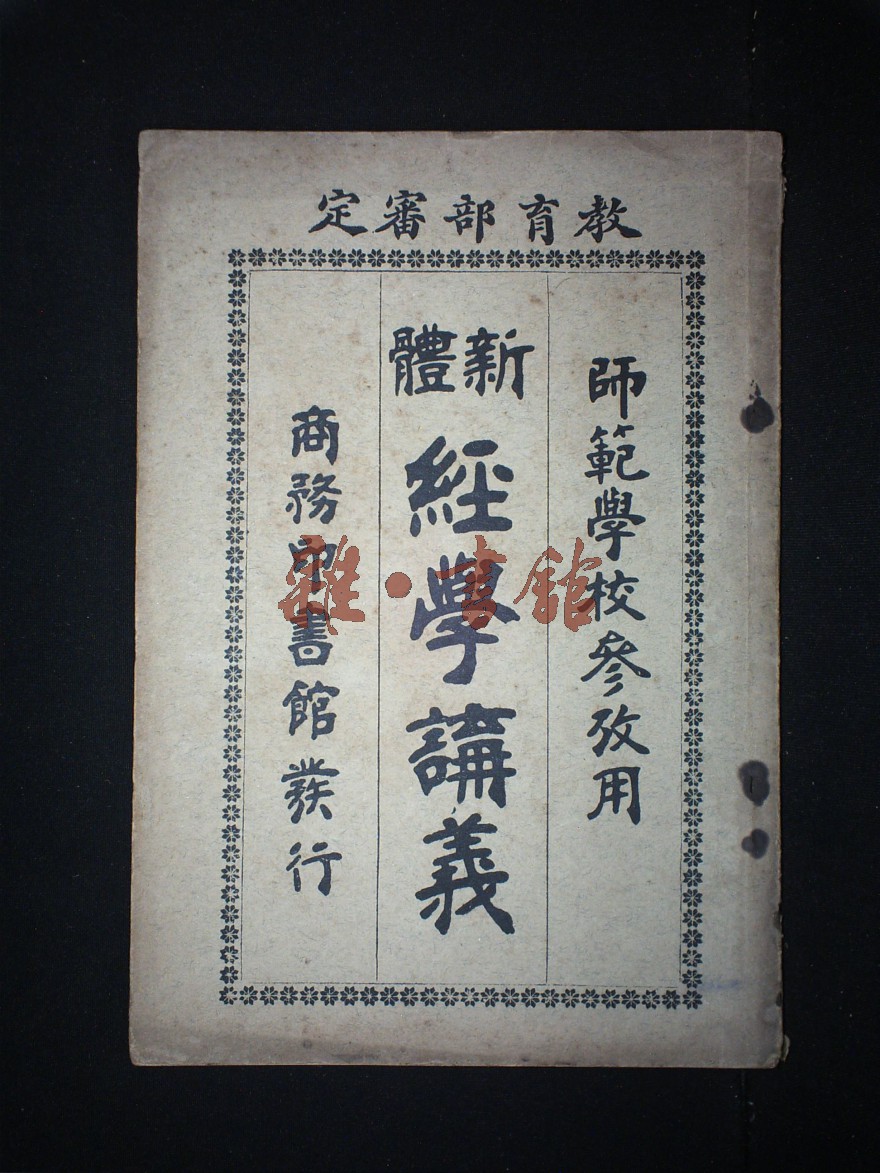 教育部審定
師範學校參攷用
新體
經學講義
商務印書館發行
雜·書館